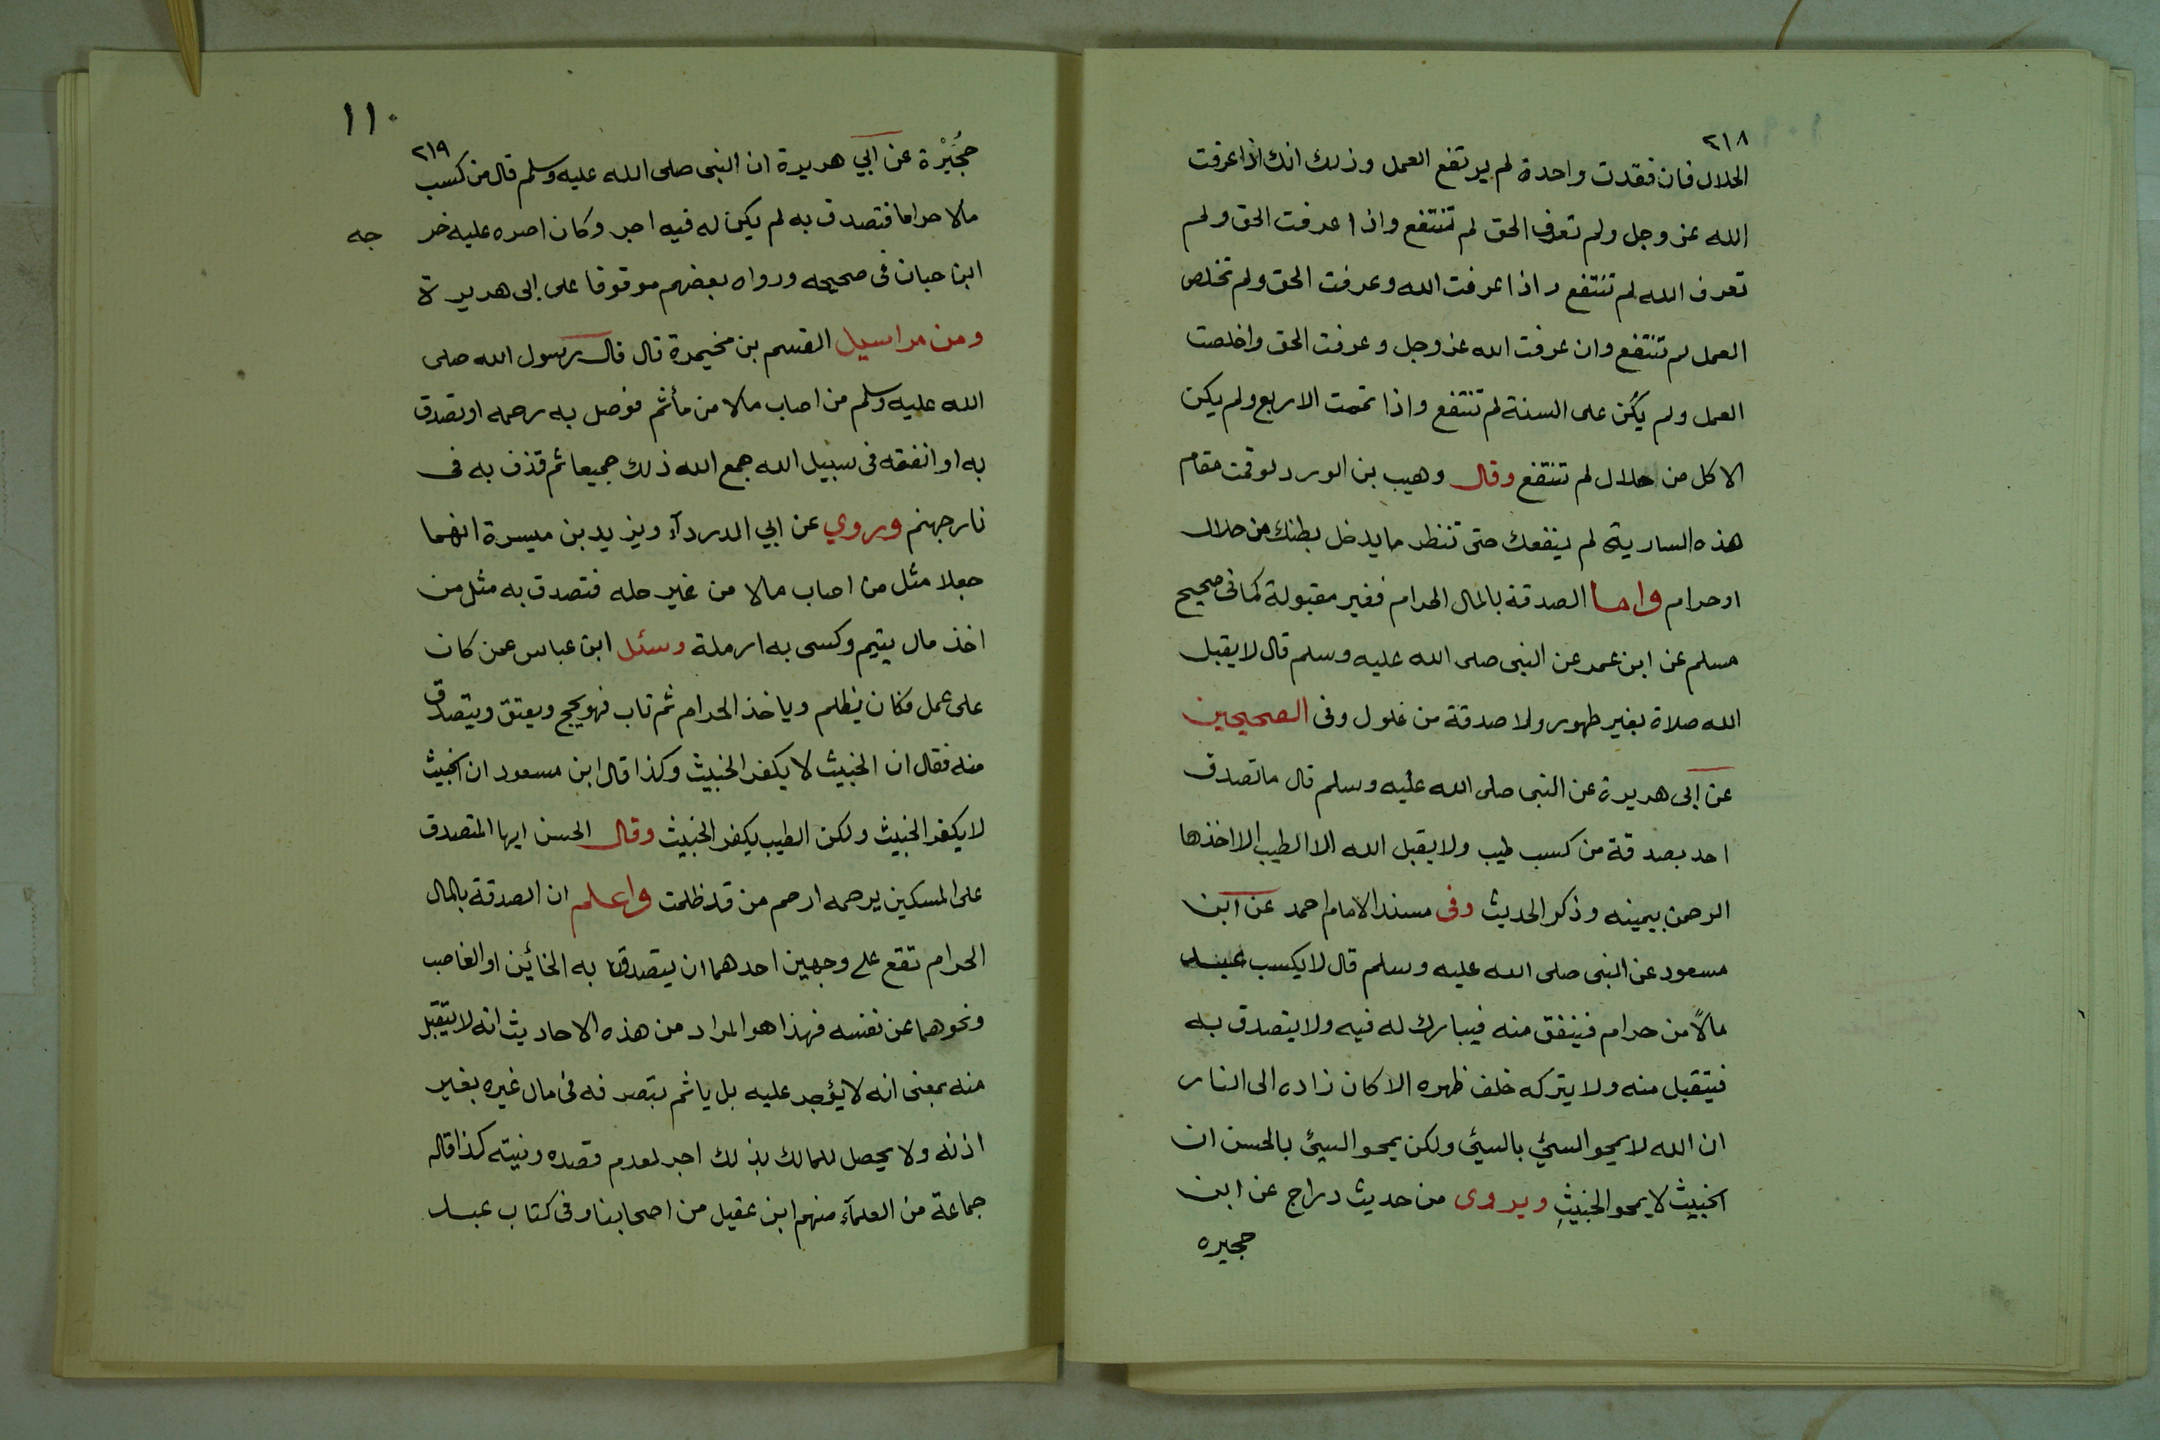 ٢١٨
الحلال فان فقدت واحدة لم يرتفع العمل وذلك انك اذا عرفت
الله عز وجل ولم تعرف الحق لم تنتفع واذا عرفت الحق ولم
تعرف الله لم تنتفع واذا عرفت الله وعرفت الحق ولم تخلص
العمل لم تنتفع وان عرفت الله عز وجل وعرفت الحق واخلصت
العمل ولم يكن على السنة لم تنتفع واذا تممت الاربع ولم يكن
الاكل من حلال لم تنتفع وقال وهيب بن الورد لو قمت مقام
هذه السارية لم ينفعك حتى تنظر ما يدخل بطنك من حلال
او حرام واما الصدقة بالمال الحرام فغير مقبولة كما فى صحيح
مسلم عن ابن عمر عن النبى صلى الله عليه وسلم قال لا يقبل
الله صلاة بغير طهور ولا صدقة من غلول وفى الصحيحين
عن ابى هريرة عن النبى صلى الله عليه وسلم قال ما تصدق
احد بصدقة من كسب طيب ولا يقبل الله الا الطيب الا اخذها
الرحمن بيمينه وذكر الحديث وفى مسند الامام احمد عن ابن
مسعود عن النبى صلى الله عليه وسلم قال لا يكسب عبد
مالاً من حرام فينفق منه فيبارك له فيه ولا يتصدق به
فيتقبل منه ولا يتركه خلف ظهره الا كان زاده الى النار
ان الله لا يمحو السيئ بالسيئ ولكن يمحو السيئ بالحسن ان
الخبيث لا يمحو الخبيثِ ويروى من حديث دراج عن ابن
حجيره
١١٠
٢١٩
حجَُيْرة عن ابي هريرة ان النبى صلى الله عليه وسلم قال من كسب
مالا حراما فتصدق به لم يكن له فيه اجر وكان اصره عليه خر جه
ابن حبان فى صحيحه ورواه بعضهم موقوفا على ابى هريرة
ومن مراسيل القسم بن مخيمرة قال قال رسول الله صلى
الله عليه وسلم من اصاب مالا من مأثم فوصل به رحمه او تصدق
به او انفقه فى سبيل الله جمع الله ذلك جميعا ثم قذف به فى
نار جهنم وروي عن ابي الدردآء ويزيد بن ميسرة انهما
جعلا مثل من اصاب مالا من غير حله فتصدق به مثل من
اخذ مال يتيم وكسى به ارملة وسئل ابن عباس عمن كان
على عمل فكان يظلم وياخذ الحرام ثم تاب فهو يحج ويعتق ويتصدق
منه فقال ان الخبيث لا يكفر الخبيث وكذا قال ابن مسعود ان الخبيث
لا يكفر الخبيث ولكن الطيب يكفر الخبيث وقال الحسن ايها المتصدق
على المسكين يرحمه ارحم من قد ظلمت واعلم ان الصدقة بالمال
الحرام تقع على وجهين احدهما ان يتصدق به الخائن او الغاصب
ونحوهما عن نفسه فهذا هو المراد من هذه الاحاديث انه لا يتقبل
منه بمعنى انه لا يؤجر عليه بل ياثم بتصرفه فى مال غيره بغير
اذنه ولا يحصل للمالك بذلك اجر لعدم قصده ونيته كذا قاله
جماعة من العلمآء منهم ابن عقيل من اصحابنا وفى كتاب عبد